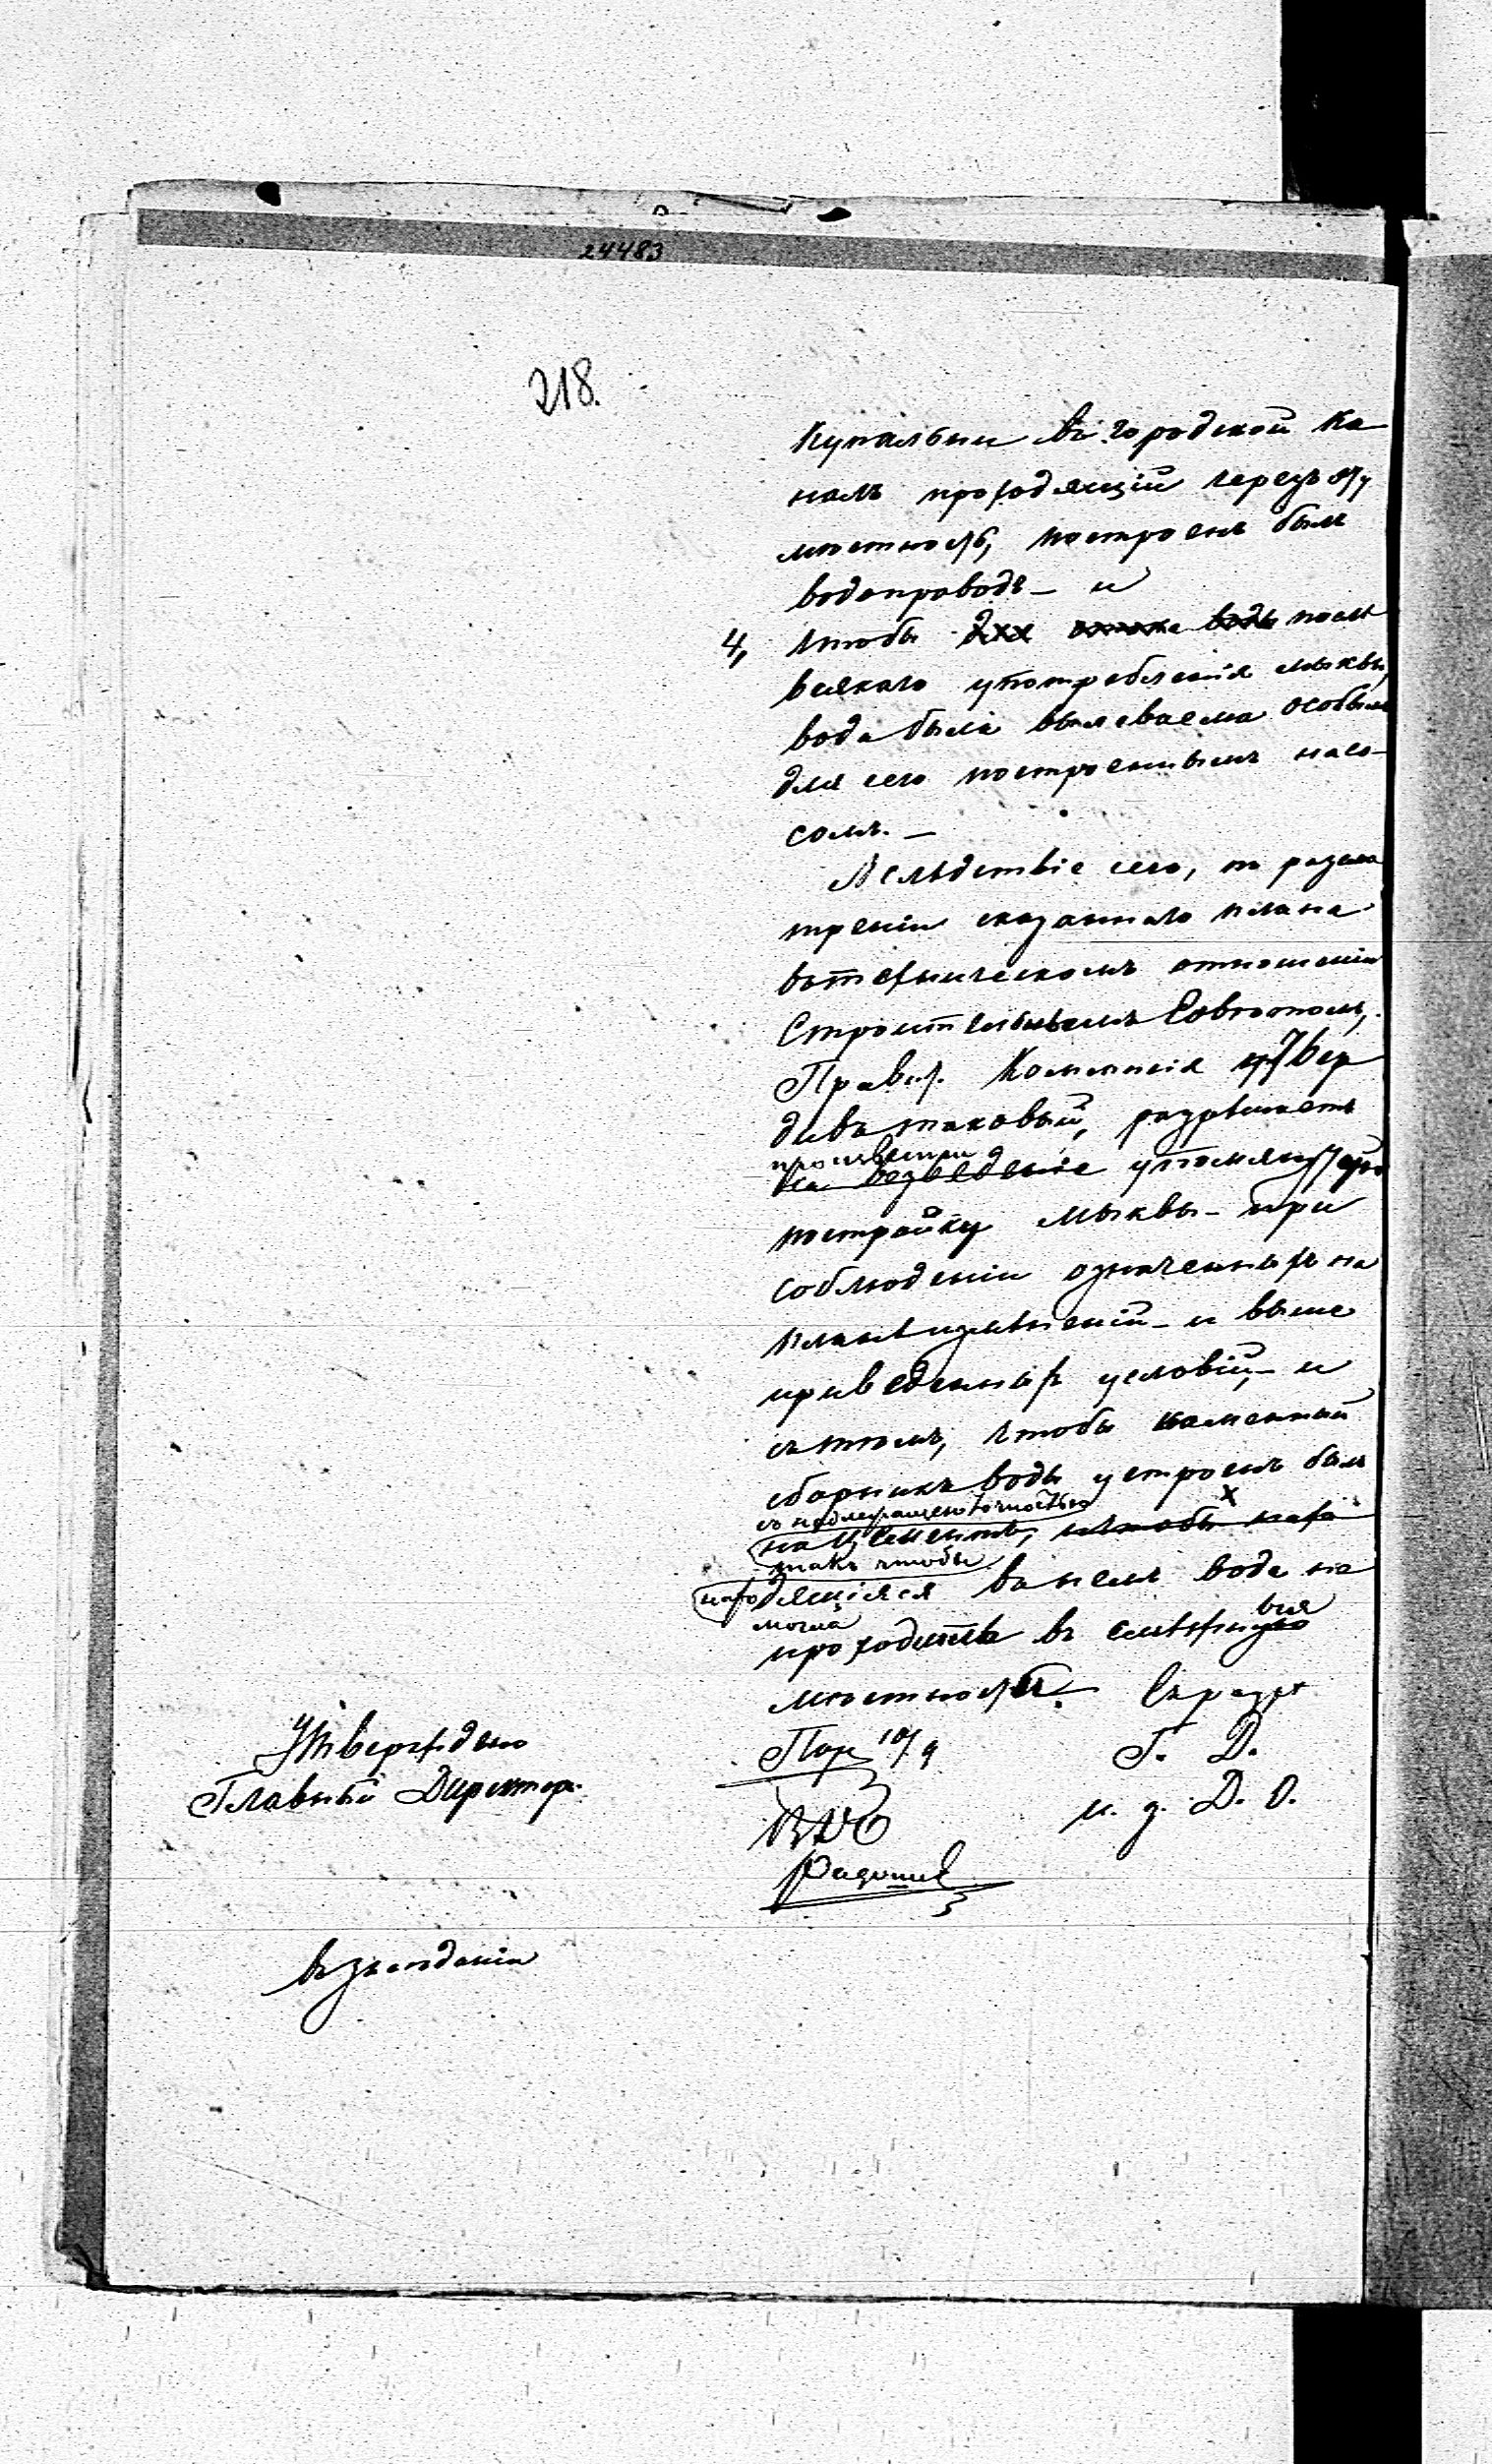 24483
218.
Купальни въ городской ка-
налъ проходящій черезъ эту
мѣстность, построенъ былъ
водопроводъ - и
4, чтобы послѣ
всякаго употребленія мыквы,
вода была выливаема особымъ
для сего построеннымъ насо-
сомъ. -
Вслѣдствіе сего, по разсмо
трѣніи сказаннаго плана
въ техническомъ отношеніи
Строительнымъ Совѣтомъ,
Правит. Коммисія утвер
дивъ таковый, разрѣшаетъ
произвести
на возведеніе упомянутую
постройку мыквы - при
соблюденіи означенныхъ на
планѣ измѣненій - и выше
приведенныхъ условій, - и
съ тѣмъ, чтобы каменный
сборникъ воды устроенъ былъ
съ надлежащею точностью
на цементѣ, и чтобы нахо
такъ чтобы
находящаяся въ немъ вода не
могла
проходить въ смѣжныя
мѣстности. Съ разр.
Утверждено
Главный Директоръ
Пор 10/9
Г. Д.
и. д. Д. О.
въ засѣданіи